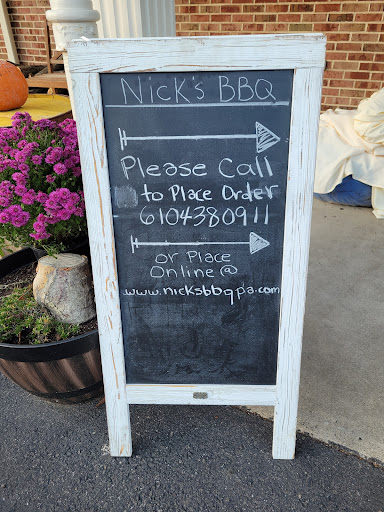 Nick's BBQ
Please Call
to Place Order
6104380911
or Place
Online @
www.nicksbbqpa.com